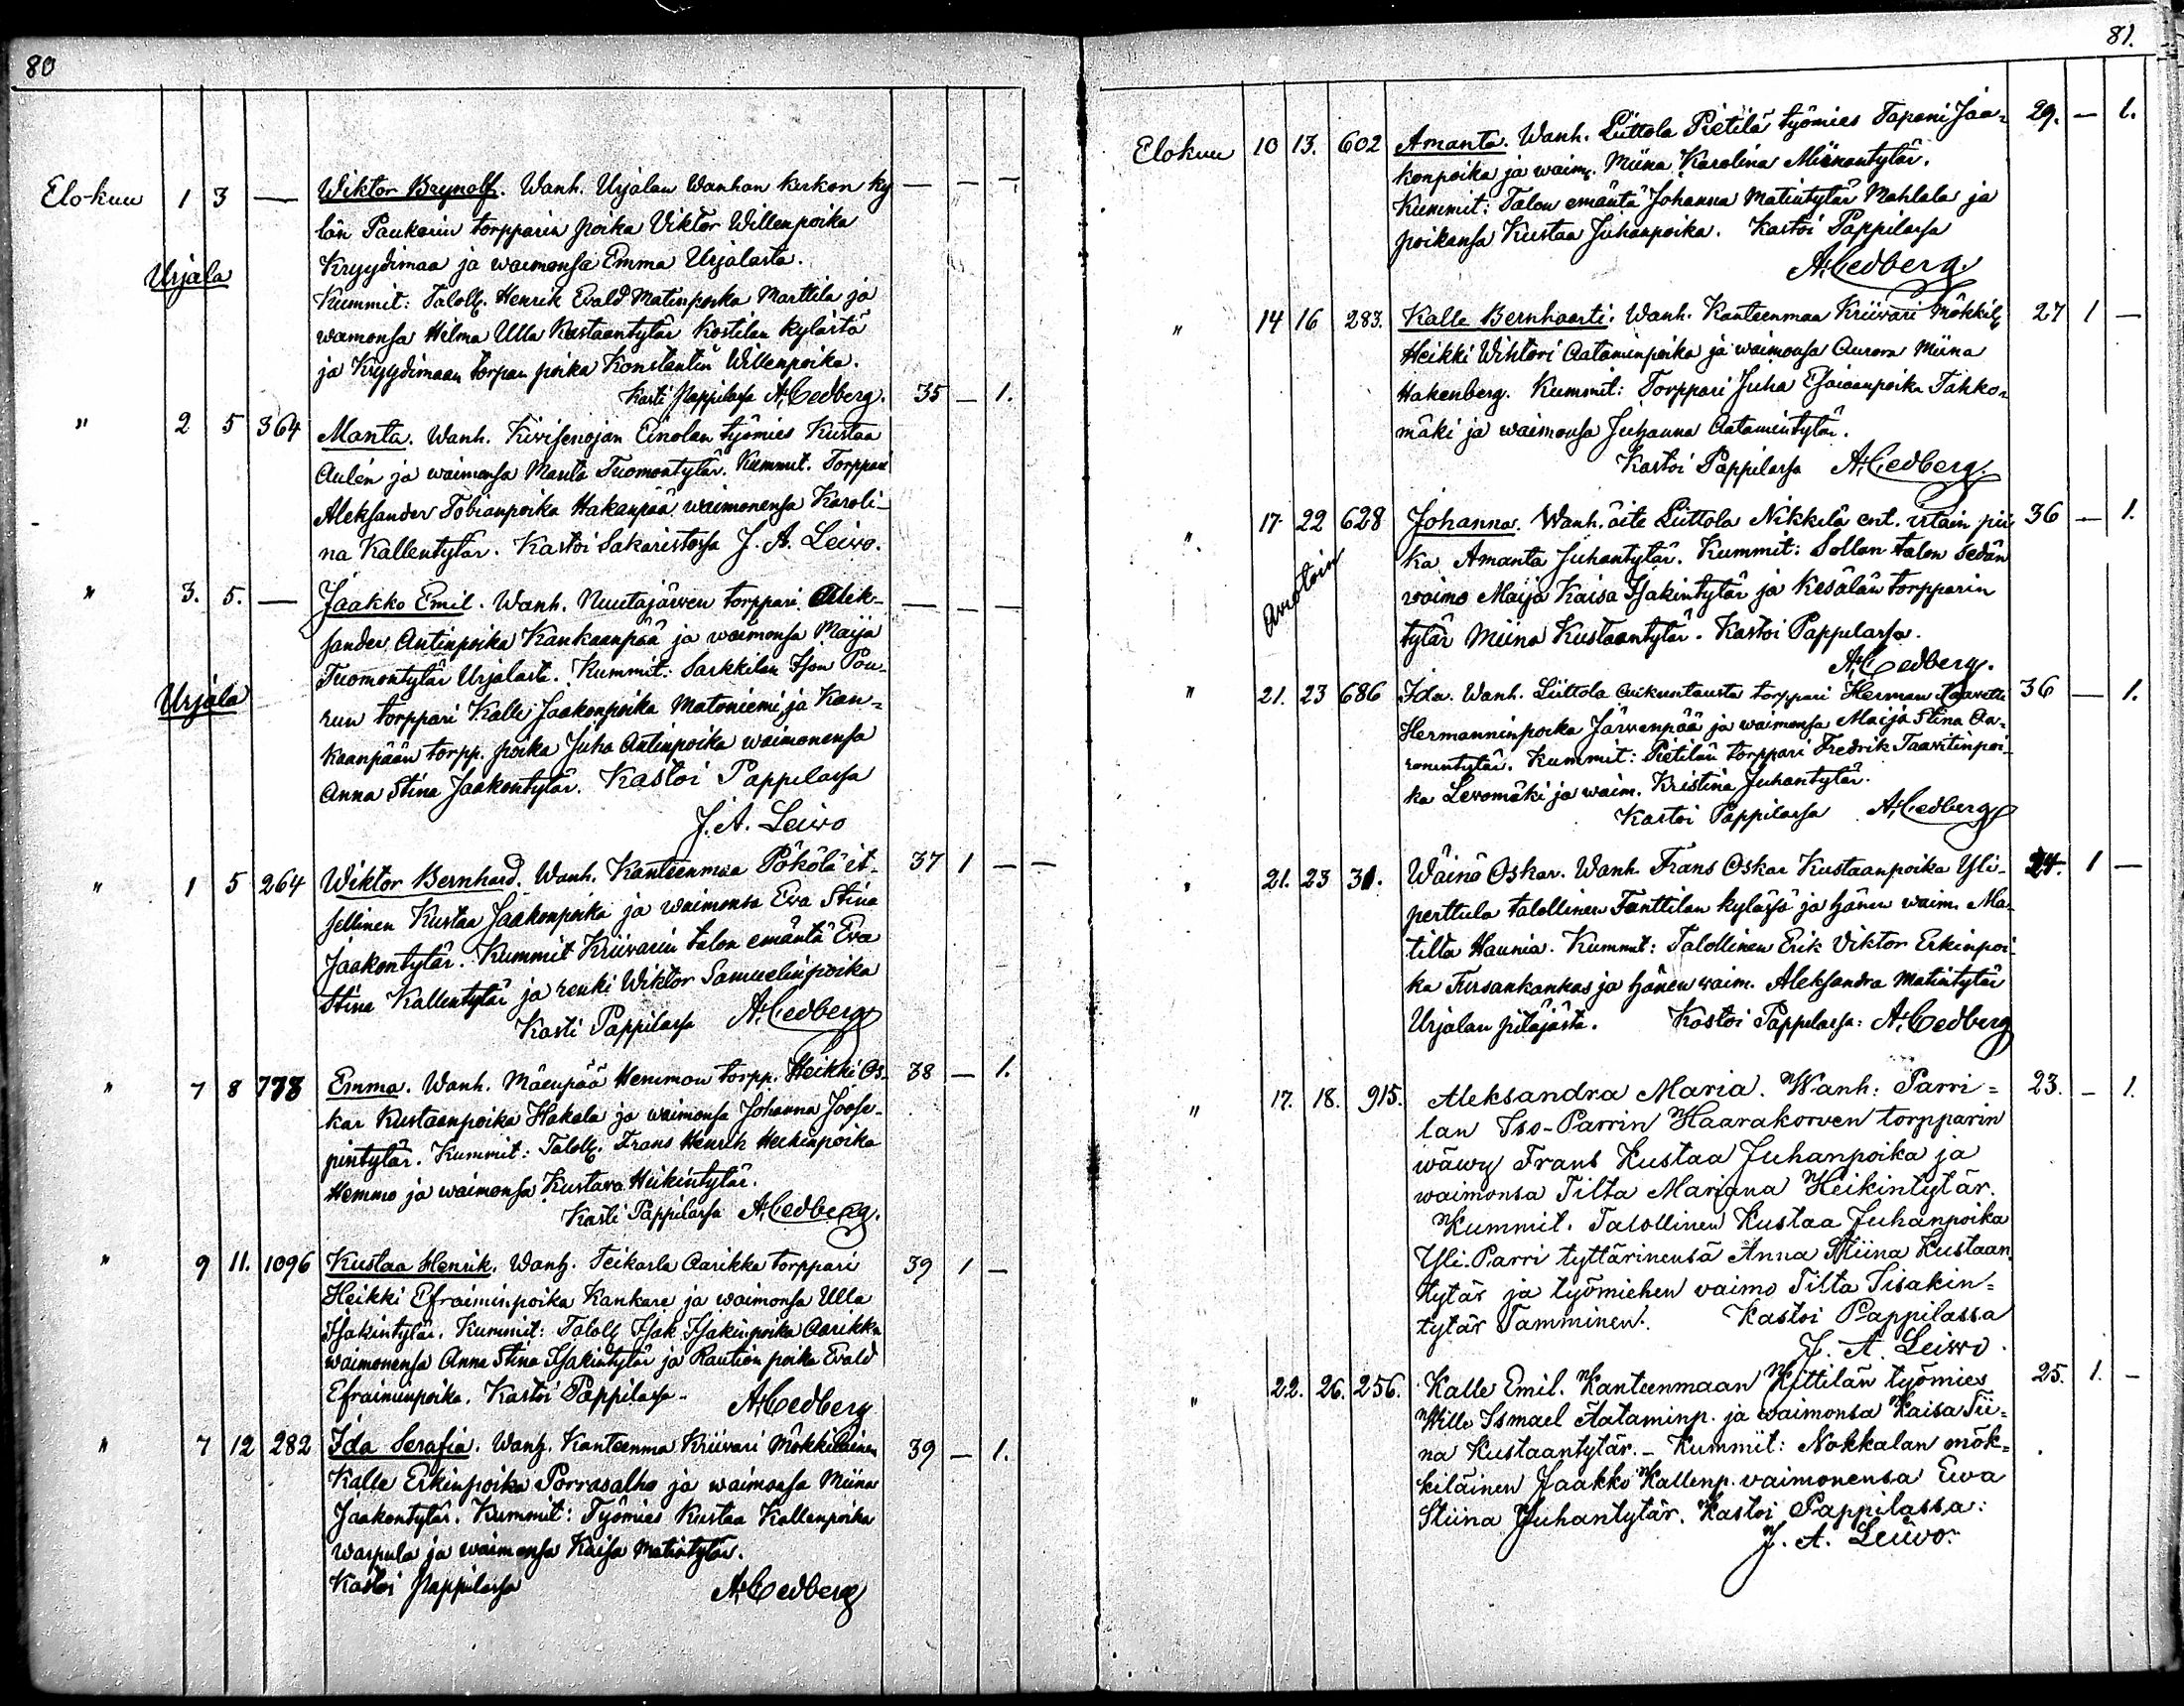 80
Elo-kuu 1 3 — Wiktor Brynolf. Wanh. Urjalan Wanhan kirkon ky — — —
län Paukarin torpparin poika Viktor Willenpoika
Kryydimaa ja waimonsa Emma Urjalasta.
Urjala
Kummit: Taloll. Henrik Evald Matinpoika Marttila ja
waimonsa Hilma Ulla Kustaantytär Kostilan kylästä
ja Kryydimaan torpan poika Konstantin Willenpoika.
Kasti Pappilassa A. Cedberg.
" 2 5 364 Manta. Wanh. Kivisenojan Einolan työmies Kustaa 35 — 1.
Aulén ja waimonsa Manta Tuomontytär. Kummit. Torppari
Aleksander Tobianpoika Hakanpää waimonensa Karoli-
na Kallentytär. Kastoi Sakaristossa J. A. Leiwo.
" 3. 5. — Jaakko Emil. Wanh. Nuutajärwen torppari Alek- — — —
sander Antinpoika Kankaanpää ja waimonsa Maija
Tuomontytär Urjalasta. Kummit: Sarkkilan Ison Pou-
Urjala
run torppari Kalle Jaakonpoika Matoniemi ja Kan-
kaanpään torpp. poika Juho Antinpoika waimonensa
Anna Stina Jaakontytär. Kastoi Pappilassa
J. A. Leiwo
" 1 5 264 Wiktor Bernhard. Wanh. Kanteenmaa Pökölä it- 37 1 — —
sellinen Kustaa Jaakonpoika ja waimonsa Eva Stina
Jaakontytär. Kummit Kriivarin talon emäntä Eva
Stina Kallentytär ja renki Wiktor Samuelinpoika
Kasti Pappilassa A. Cedberg
" 7 8 778 Emma. Wanh. Mäenpää Hemmon torpp. Heikki Os- 38 — 1.
kar Kustaanpoika Hakala ja waimonsa Johanna Joose-
pintytär. Kummit: Taloll. Frans Henrik Heikinpoika
Hemmo ja waimonsa Kustava Heikintytär.
Kasti Pappilassa A. Cedberg.
" 9 11. 1096 Kustaa Henrik. Wanh. Teikarla Aarikka torppari 39 1 —
Heikki Efraiminpoika Kankare ja waimonsa Ulla
Isakintytär. Kummit: Taloll Isak Isakinpoika Aarikka
waimonensa Anna Stina Isakintytär ja Raution poika Evald
Efraiminpoika. Kastoi Pappilassa. A. Cedberg
" 7 12 282 Ida Serafia. Wanh. Kanteenma Kriivari Mökkiläinen 39 — 1.
Kalle Erkinpoika Porrasalho ja waimonsa Miina
Jaakontytär. Kummit: Työmies Kustaa Kallenpoika
warpula ja waimonsa Kaisa Matintytär.
Kastoi Pappilassa A. Cedberg
81.
Elokuu 10 13. 602 Amanta. Wanh. Liittola Pietilä työmies Tapani Jaa- 29. — 1.
konpoika ja waim. Miina Karolina Miinantytär.
Kummit: Talon emäntä Johanna Matintytär Mahlala ja
poikansa Kustaa Juhanpoika. Kastoi Pappilassa
A. Cedberg.
" 14 16 283. Kalle Bernhaarti. Wanh. Kanteenmaa Kriivari Mökkil 27 1 —
Heikki Wihtori Aataminpoika ja waimonsa Aurora Miina
Hakenberg. Kummit: Torppari Juha Esaiaanpoika Tahko-
mäki ja waimonsa Juhanna Aatamintytär.
Kastoi Pappilassa A. Cedberg.
" 17. 22 628 Johanna. Wanh. äite Liittola Nikkilä ent. utain pii 36 — 1.
Aviotoin
ka Amanta Juhantytär. Kummit: Sollan talon sedän
waimo Maija Kaisa Isakintytär ja Kesälän torpparin
tytär Miina Kustaantytär. Kastoi Pappilassa.
A. Cedberg.
" 21. 23 686 Ida. Wanh. Liittola torppari Herman Taavetti 36 — 1.
Hermanninpoika Järvenpää ja waimonsa Maija Stina Aa-
ronintytär. Kummit: Pietilän torppari Fredrik Taavitinpoi-
ka Levomäki ja waim. Kristina Juhantytär.
Kastoi Pappilassa A. Cedberg
" 21. 23 31. Wäinö Oskar. Wanh. Frans Oskar Kustaanpoika Yli- 24. 1 —
perttula talollinen Fanttilan kylässä ja hänen waim. Ma-
tilta Haunia. Kummit: Talollinen Erik Viktor Erkinpoi-
ka Kursankankas ja hänen waim. Aleksandra Matintytär
Urjalan pitäjästä. Kastoi Pappilassa: A. Cedberg
" 17. 18. 915. Aleksandra Maria. Wanh: Parri- 23. — 1.
lan Iso-Parrin Haarakorven torpparin
wäwy Frans Kustaa Juhanpoika ja
waimonsa Tilta Marjana Heikintytär.
Kummit. Talollinen Kustaa Juhanpoika
Yli-Parri tyttärinensä Anna Miina Kustaan
tytär ja työmiehen vaimo Tilta Iisakin-
tytär Tamminen. Kastoi Pappilassa
J. A. Leiwo.
" 22. 26. 256. Kalle Emil. Kanteenmaan Kittilän työmies 25. 1. —
Wille Ismael Aataminp. ja waimonsa Kaisa Tii-
na Kustaantytär. - Kummit: Nokkalan mök-
kiläinen Jaakko Kallenp. vaimonensa Ewa
Stiina Juhantytär. Kastoi Pappilassa:
J. A. Leiwo.